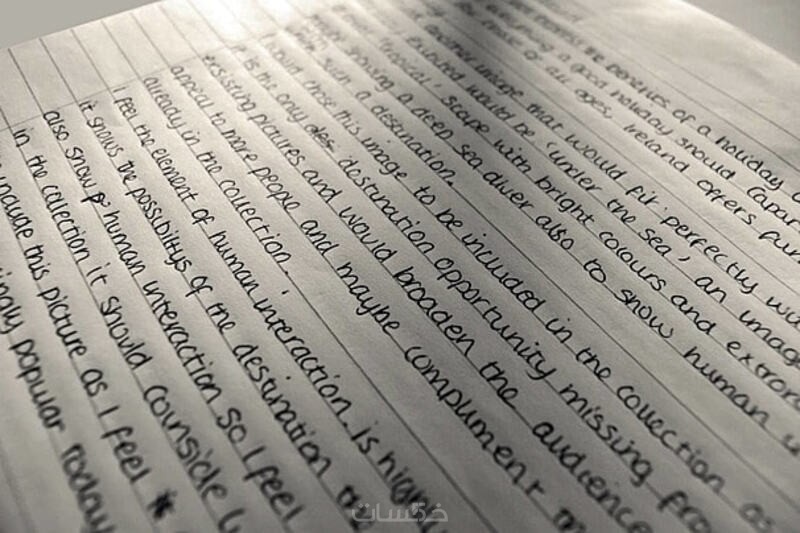 the benefits of a holiday
a good holiday should capture
of all ages, Ireland offers fun
image that would fit perfectly
would be 'under the sea', an image
tropical' scape with bright colours and
showing a deep sea diver also to show human
such a destination.
chose this image to be included in the collection as
it is the only destination opportunity missing from
exsisting pictures and would broaden the audience
appeal to more people and maybe compliment
already in the collection.
I feel the element of human interaction is
it shows the possibilitys of the destination
also show human interaction so I feel
in the collection it should counside
include this picture as I feel
popular today
خمسات